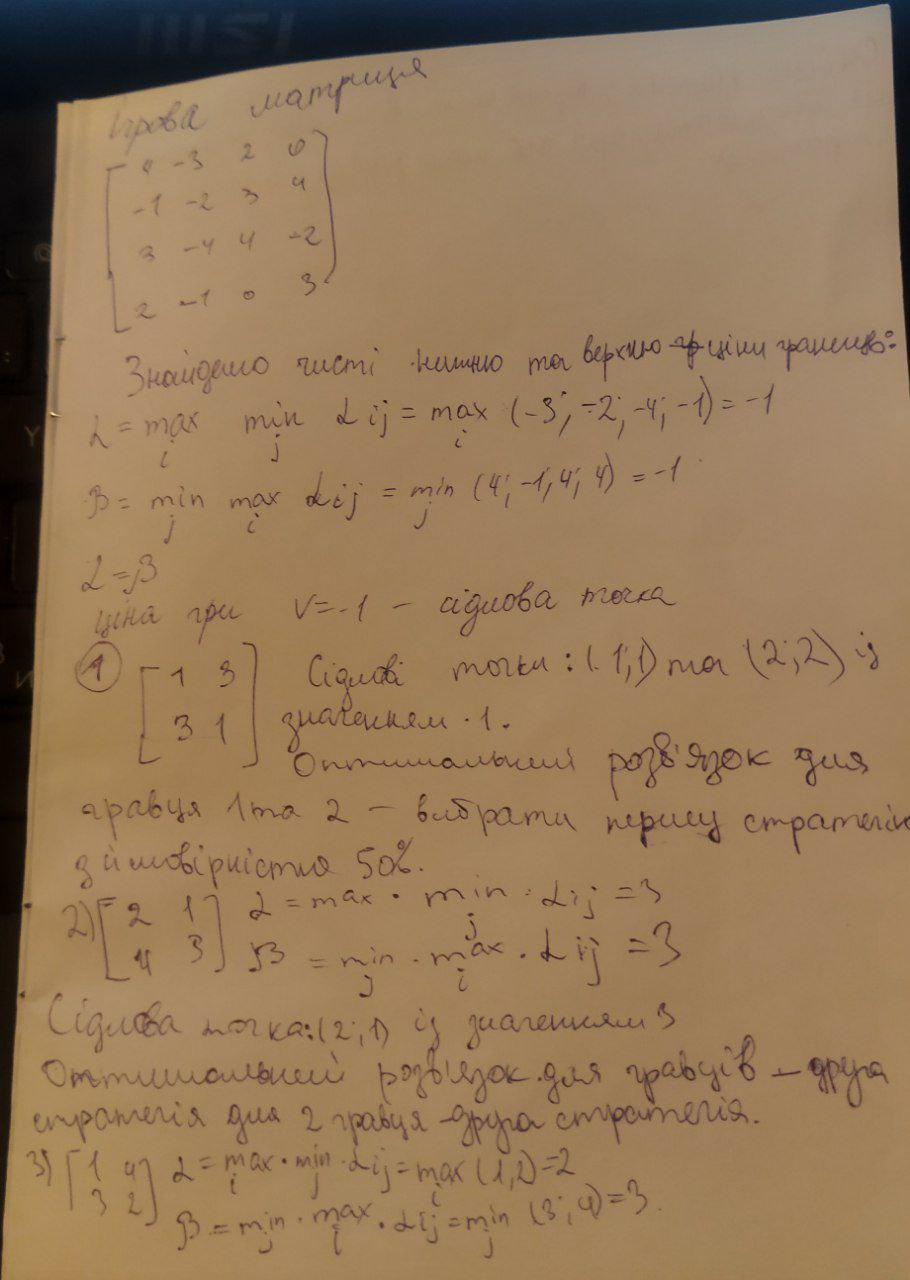 Ігрова матриця
4 -3 2 0
-1 -2 3 4
3 -4 4 -2
2 -1 0 3
Знайдемо чисті нижню та верхню ціни границю:
α = max min α ij = max (-3; -2; -4; -1) = -1
i j i
β = min max α ij = min (4; -1; 4; 4) = -1
j i j
α = β
ціна гри v = -1 - сідлова точка
① [ 1 3 Сідлові точки: (1;1) та (2;2) із
3 1 ] значенням 1.
Оптимальний розв'язок для
гравця 1 та 2 - вибрати першу стратегію
з ймовірністю 50%.
2) [ 2 1 ] α = max · min · α ij = 3
j
4 3 β = min · max · α ij = 3
j i
Сідлова точка: (2;1) із значенням 3
Оптимальний розв'язок для гравців - друга
стратегія для 2 гравця - друга стратегія.
3) [ 1 4 ] α = max · min · α ij = max (1,2) = 2
3 2 i j i
β = min · max · α ij = min (3; 4) = 3.
j i j